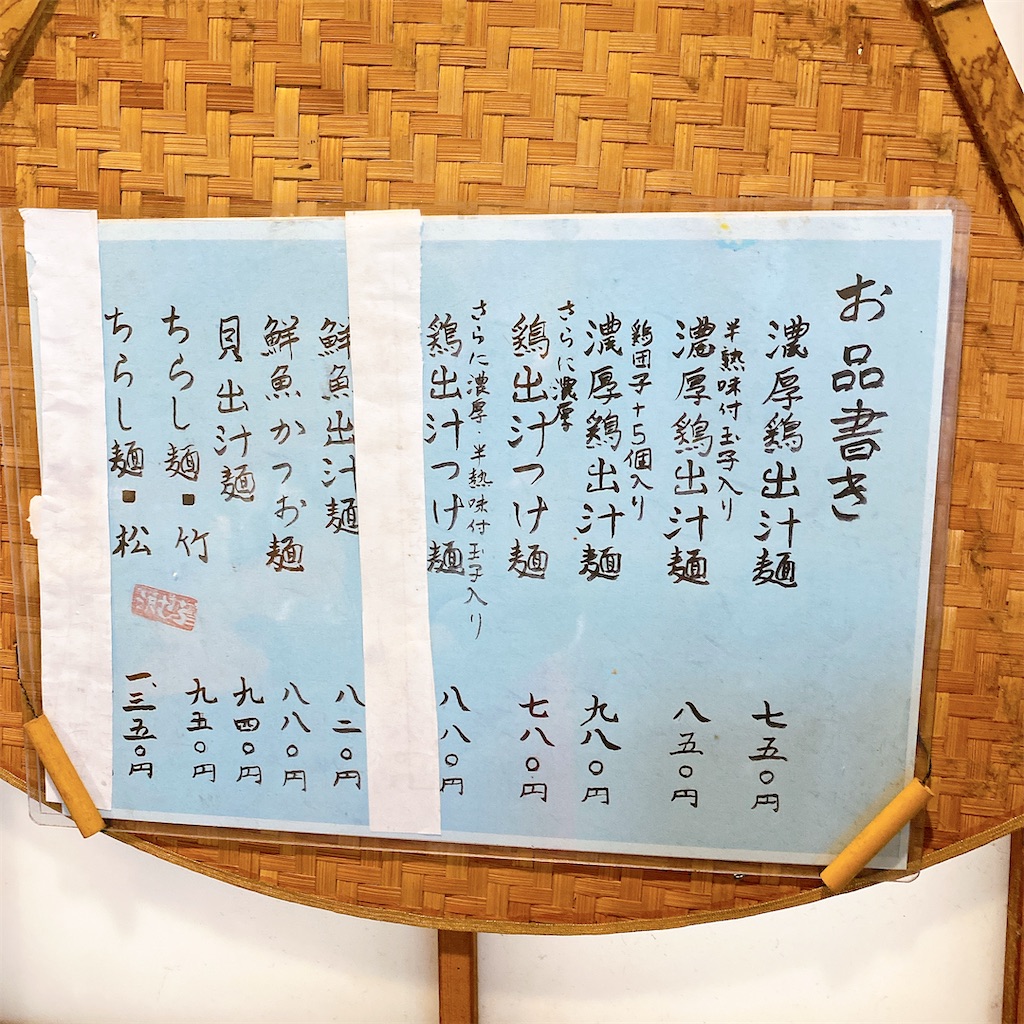 お品書き
濃厚鶏出汁麺
七五〇円
半熟味付玉子入り
濃厚鶏出汁麺
八五〇円
鶏団子+5個入り
濃厚鶏出汁麺
九八〇円
さらに濃厚
鶏出汁つけ麺
七八〇円
さらに濃厚・半熟味付玉子入り
鶏出汁つけ麺
八八〇円
鮮魚出汁麺
八二〇円
鮮魚かつお麺
八八〇円
貝出汁麺
九四〇円
ちらし麺・竹
九五〇円
ちらし麺・松
一、三五〇円